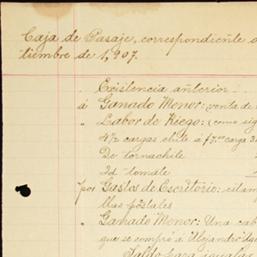 Caja de Pasaje, correspondiente a
tiembre de 1,907.
Existencia anterior
á Ganado Menor: venta de
" Labor de Riego: (como sig
4 1/2 cargas chile á $7.00 carga 3
De tornachile
Id tomate
por Gastos de Escritorio: estam
llas postales
" Ganado Menor: Una cab
que se compró á Alejandro
Saldo para igualar